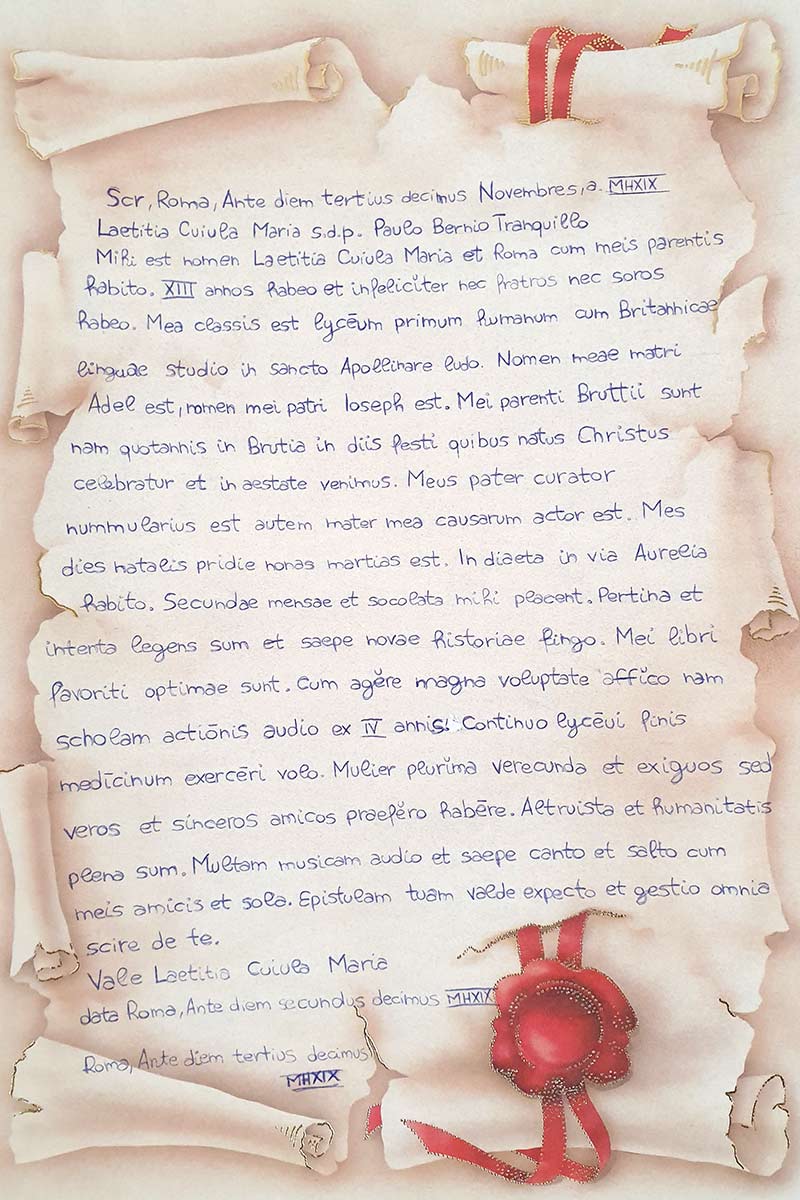 Scr, Roma, Ante diem tertius decimus Novembres, a. MHXIX
Laetitia Cuiula Maria s.d.p. Paulo Bernio Tranquillo
Mihi est nomen Laetitia Cuiula Maria et Roma cum meis parentis
habito. XIII annos habeo et infeliciter nec fratros nec soros
habeo. Mea classis est lycēum primum humanum cum Britannicae
linguae studio in sancto Apollinare ludo. Nomen meae matri
Adel est, nomen mei patri Ioseph est. Mei parenti Bruttii sunt
nam quotannis in Brutia in diis festi quibus natus Christus
celebratur et in aestate venimus. Meus pater curator
nummularius est autem mater mea causarum actor est. Mes
dies natalis pridie nonas martias est. In diaeta in via Aurelia
habito. Secundae mensae et socolata mihi placent. Pertina et
intenta legens sum et saepe novae historiae fingo. Mei libri
favoriti optimae sunt. Cum agĕre magna voluptate affico nam
scholam actiōnis audio ex IV annis. Continuo lycēui finis
medīcinum exercēri volo. Mulier plurima verecunda et exiguos sed
veros et sinceros amicos praefĕro habēre. Altruista et humanitatis
plena sum. Multam musicam audio et saepe canto et salto cum
meis amicis et sola. Epistulam tuam valde expecto et gestio omnia
scire de te.
Vale Laetitia Cuiula Maria
data Roma, Ante diem secundus decimus MHXIX
Roma, Ante diem tertius decimus
MHXIX